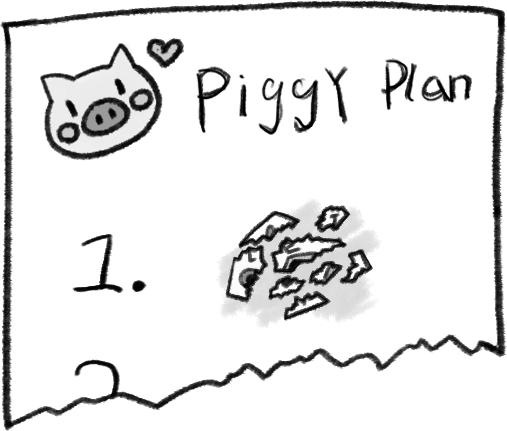 Piggy Plan
1.
2